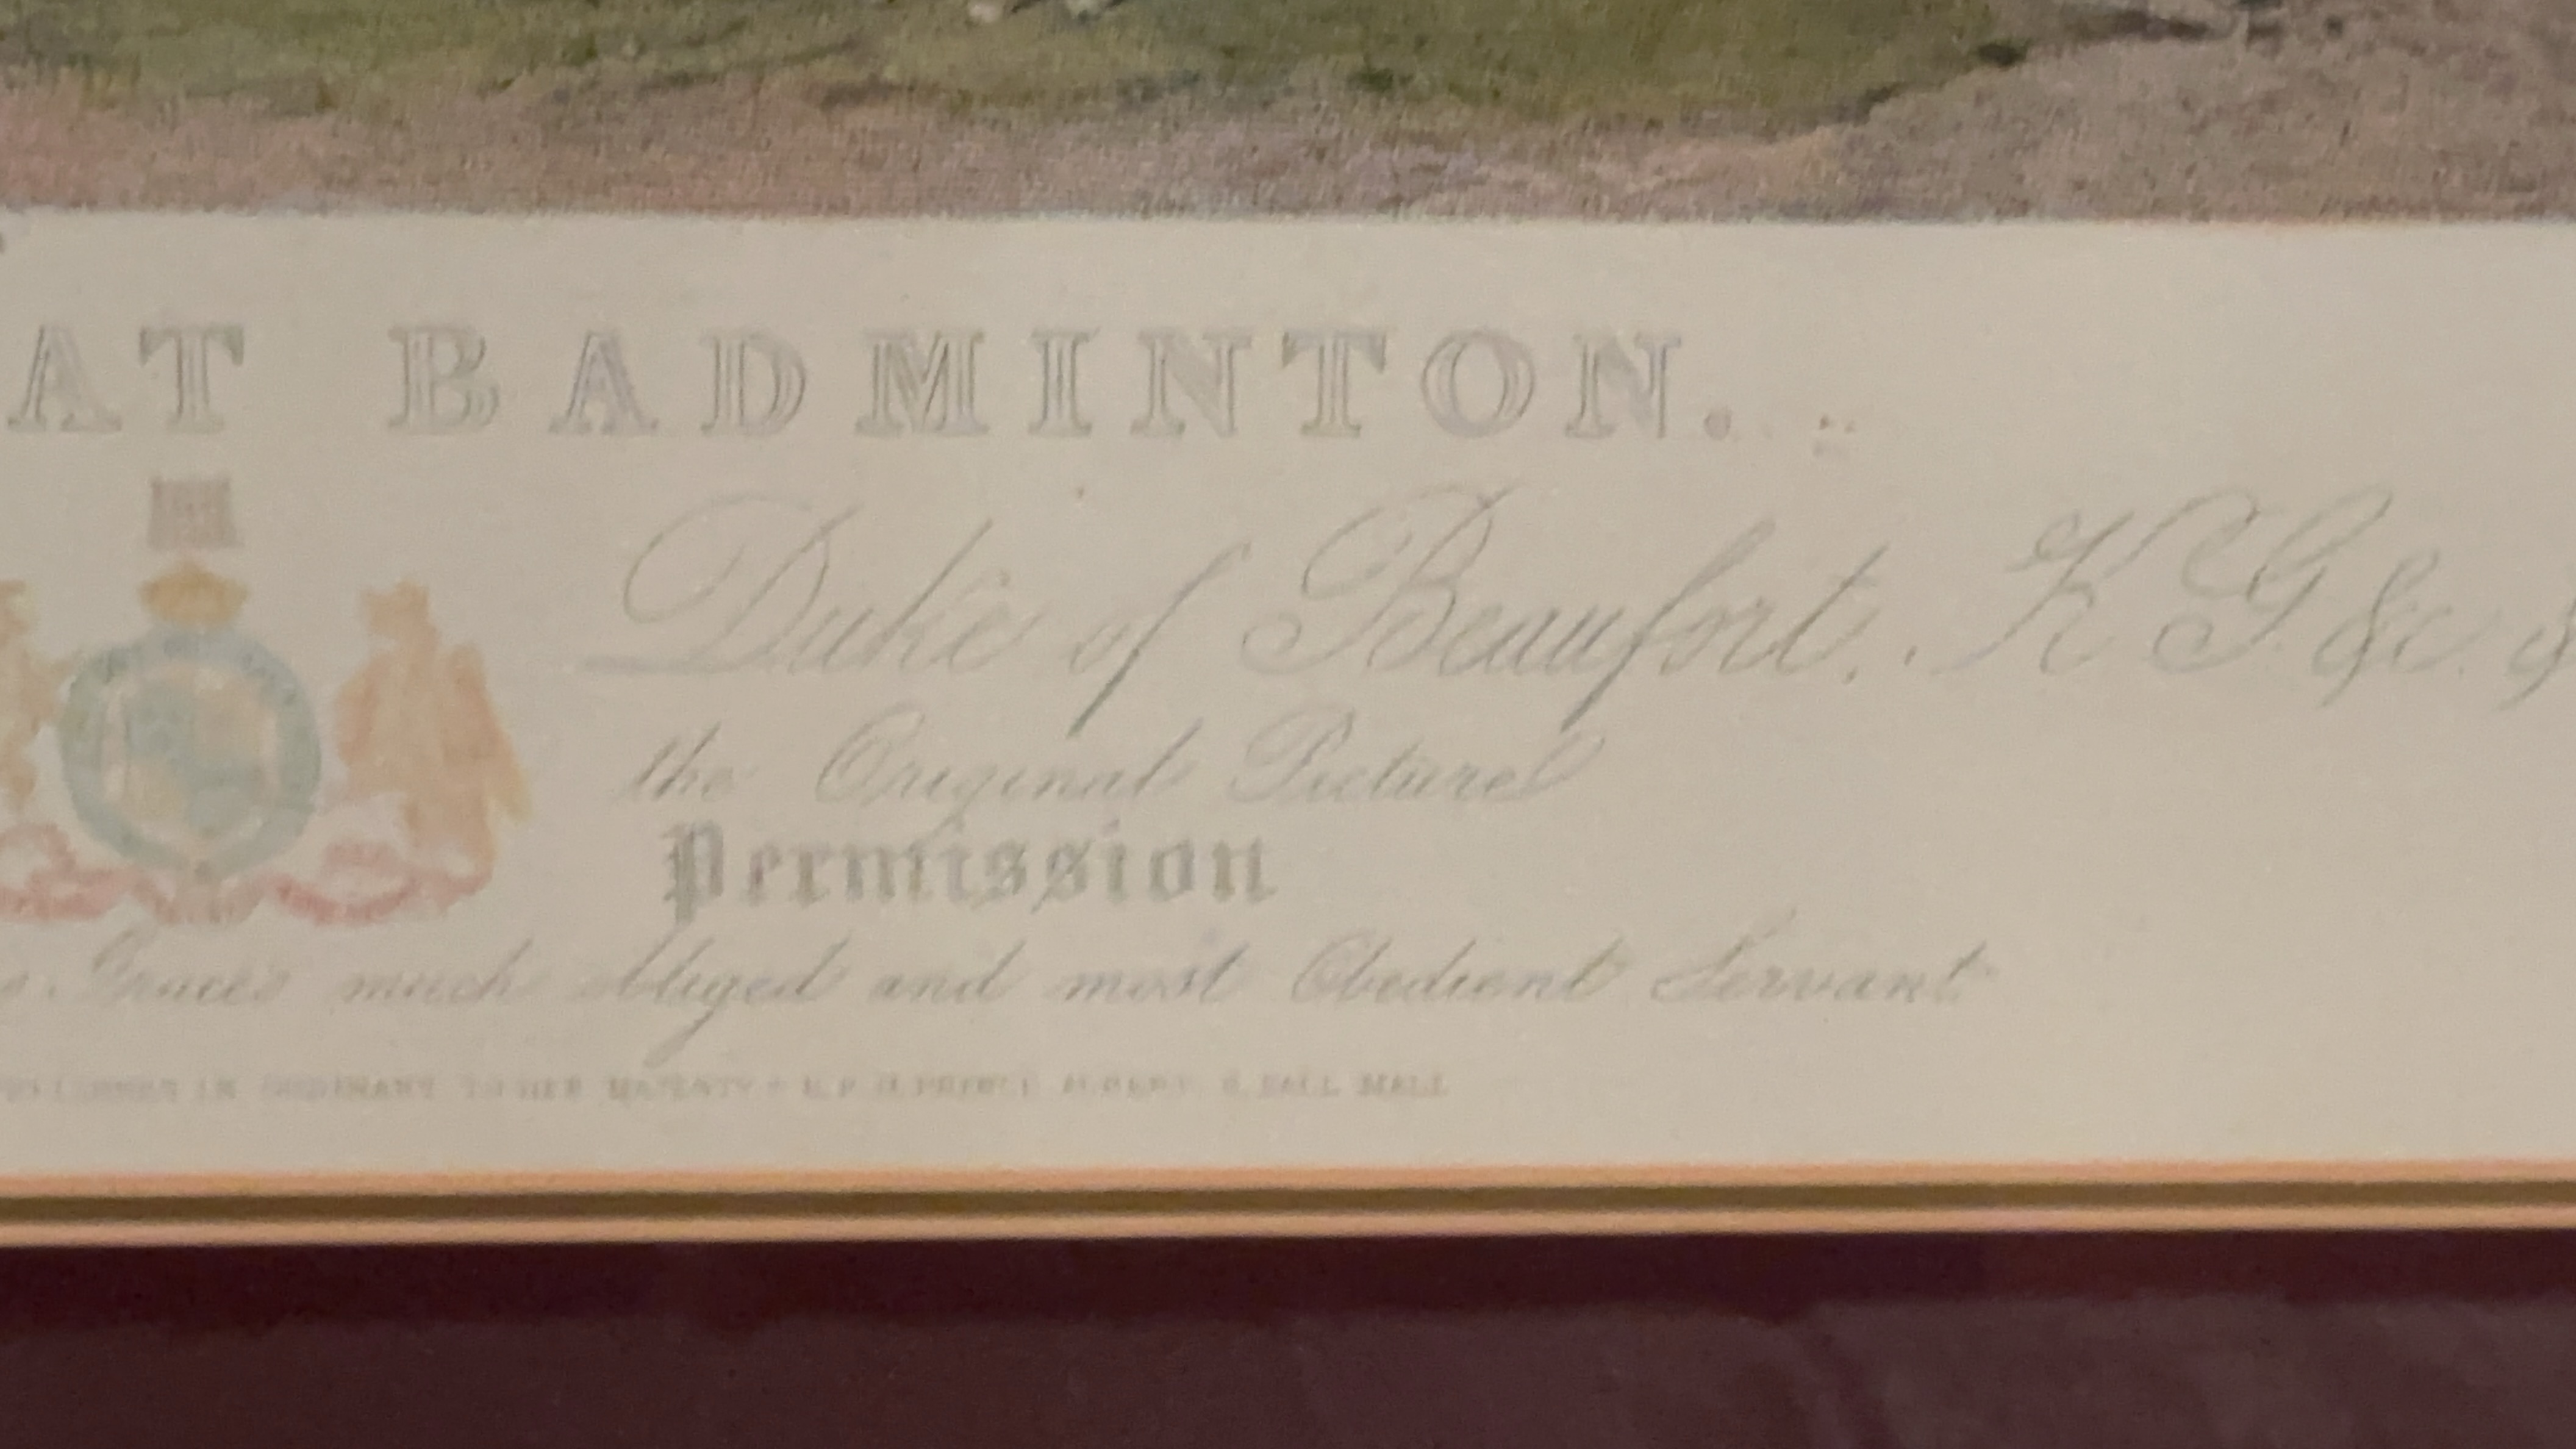 AT BADMINTON.
Duke of Beaufort, K.G. &c.
the Original Picture
Permission
Grace's much obliged and most Obedient Servant
IN ORDINARY TO HER MAJESTY & PRINCE ALBERT, PALL MALL